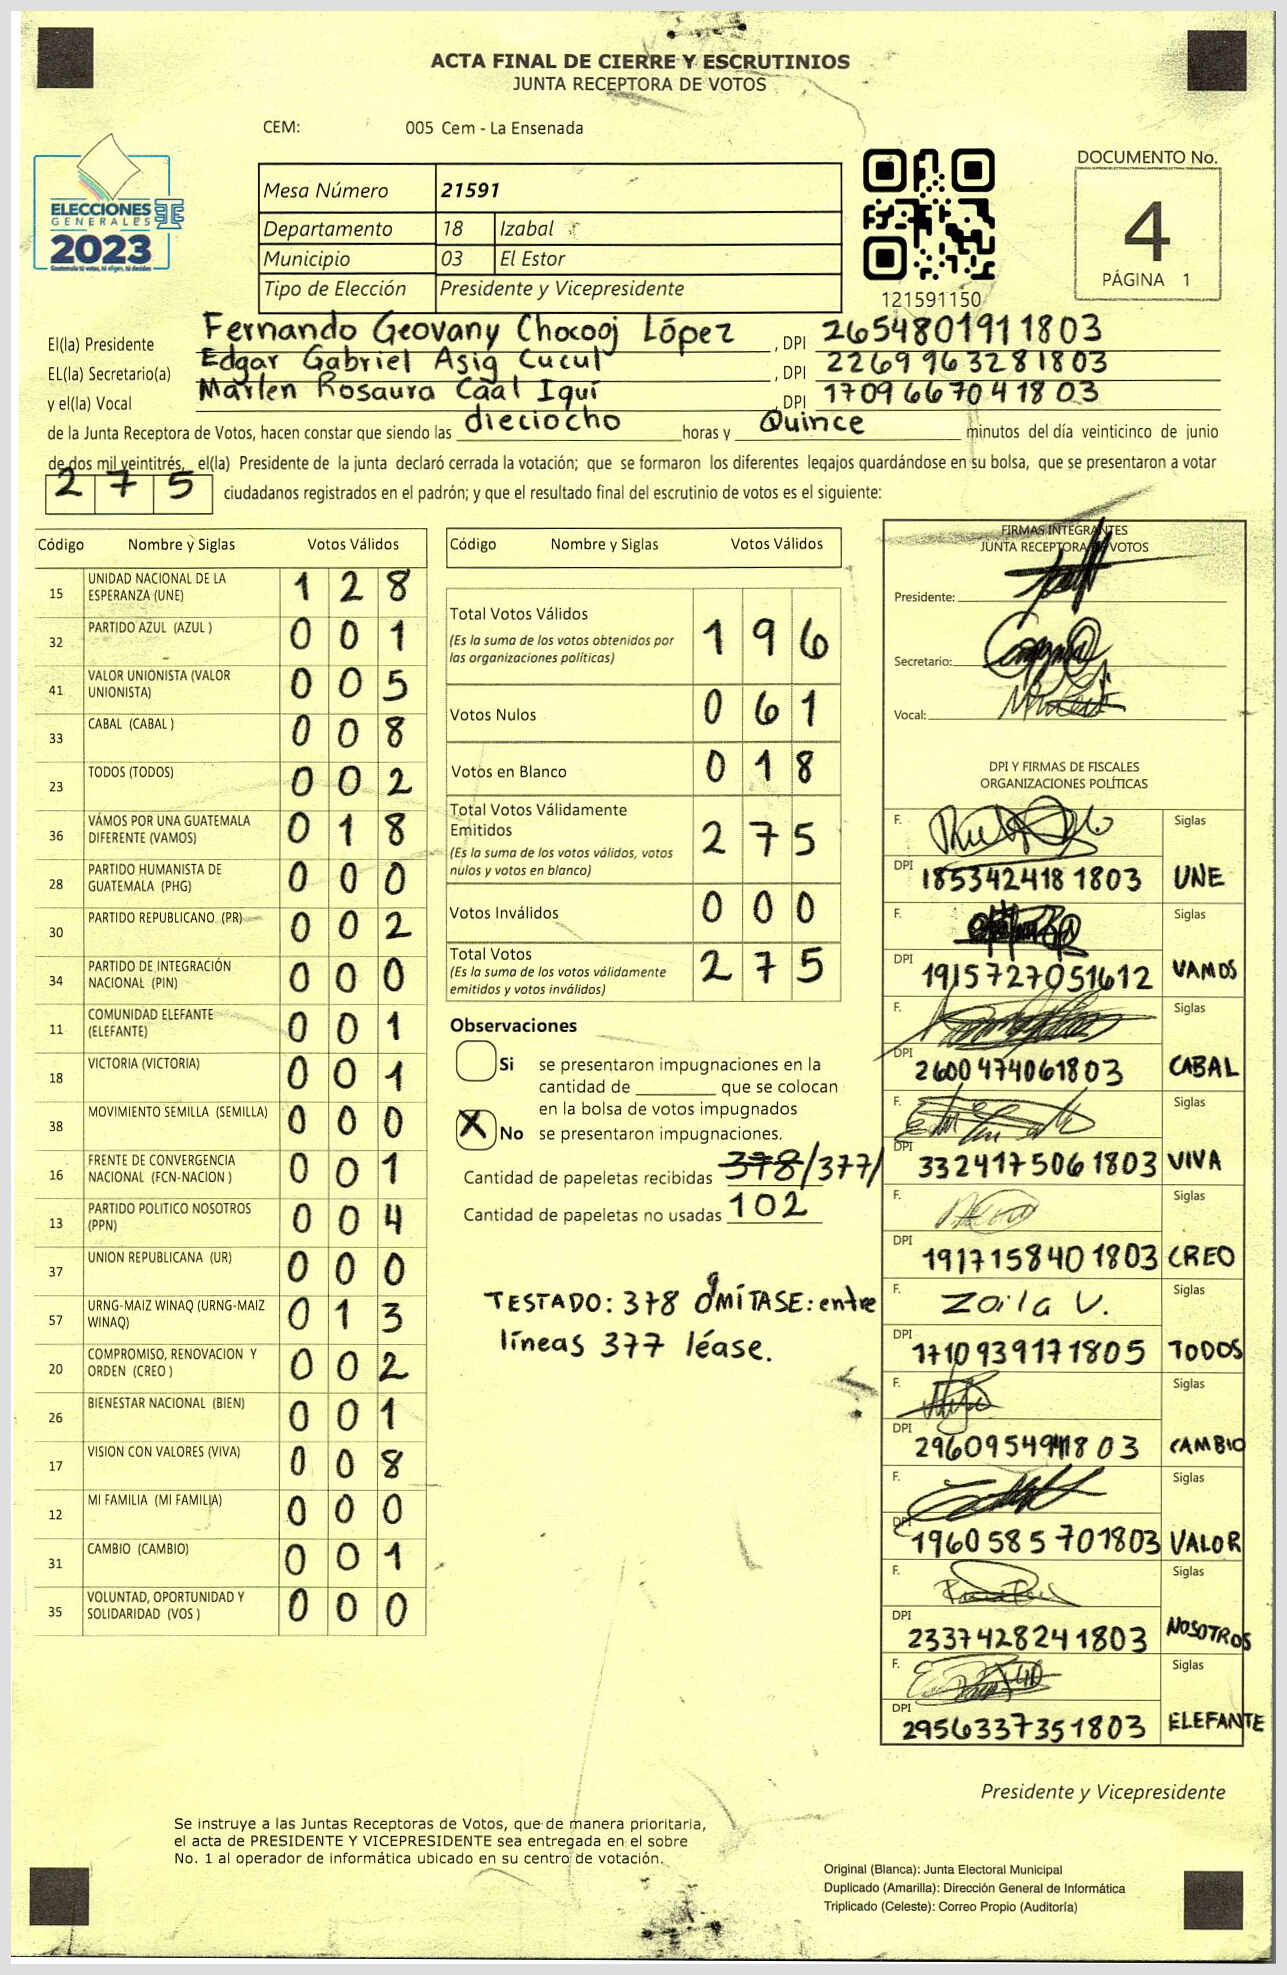 ACTA FINAL DE CIERRE Y ESCRUTINIOS
JUNTA RECEPTORA DE VOTOS
CEM: 005 Cem - La Ensenada
ELECCIONES
GENERALES
2023
Guatemala tú votas, tú eliges, tú decides
Mesa Número 21591
Departamento 18 Izabal
Municipio 03 El Estor
Tipo de Elección Presidente y Vicepresidente
121591150
DOCUMENTO No.
4
PÁGINA 1
El(la) Presidente Fernando Geovany Chocooj López, DPI 2654801911803
EL(la) Secretario(a) Edgar Gabriel Asig Cucul, DPI 2269963281803
y el(la) Vocal Marlen Rosaura Caal Iquí, DPI 1709667041803
de la Junta Receptora de Votos, hacen constar que siendo las dieciocho horas y Quince minutos del día veinticinco de junio
de dos mil veintitrés, el(la) Presidente de la junta declaró cerrada la votación; que se formaron los diferentes legajos guardándose en su bolsa, que se presentaron a votar
275 ciudadanos registrados en el padrón; y que el resultado final del escrutinio de votos es el siguiente:
Código Nombre y Siglas Votos Válidos
15 UNIDAD NACIONAL DE LA ESPERANZA (UNE) 128
32 PARTIDO AZUL (AZUL ) 001
41 VALOR UNIONISTA (VALOR UNIONISTA) 005
33 CABAL (CABAL ) 008
23 TODOS (TODOS) 002
36 VÁMOS POR UNA GUATEMALA DIFERENTE (VAMOS) 018
28 PARTIDO HUMANISTA DE GUATEMALA (PHG) 000
30 PARTIDO REPUBLICANO (PR) 002
34 PARTIDO DE INTEGRACIÓN NACIONAL (PIN) 000
11 COMUNIDAD ELEFANTE (ELEFANTE) 001
18 VICTORIA (VICTORIA) 001
38 MOVIMIENTO SEMILLA (SEMILLA) 000
16 FRENTE DE CONVERGENCIA NACIONAL (FCN-NACION ) 001
13 PARTIDO POLITICO NOSOTROS (PPN) 004
37 UNION REPUBLICANA (UR) 000
57 URNG-MAIZ WINAQ (URNG-MAIZ WINAQ) 013
20 COMPROMISO, RENOVACION Y ORDEN (CREO ) 002
26 BIENESTAR NACIONAL (BIEN) 001
17 VISION CON VALORES (VIVA) 008
12 MI FAMILIA (MI FAMILIA) 000
31 CAMBIO (CAMBIO) 001
35 VOLUNTAD, OPORTUNIDAD Y SOLIDARIDAD (VOS ) 000
Código Nombre y Siglas Votos Válidos
Total Votos Válidos 196
(Es la suma de los votos obtenidos por
las organizaciones políticas)
Votos Nulos 061
Votos en Blanco 018
Total Votos Válidamente
Emitidos 275
(Es la suma de los votos válidos, votos
nulos y votos en blanco)
Votos Inválidos 000
Total Votos 275
(Es la suma de los votos válidamente
emitidos y votos inválidos)
Observaciones
Si se presentaron impugnaciones en la
cantidad de ________ que se colocan
en la bolsa de votos impugnados
X No se presentaron impugnaciones.
Cantidad de papeletas recibidas 378/377/
Cantidad de papeletas no usadas 102
TESTADO: 378 OMÍTASE: entre
líneas 377 léase.
FIRMAS INTEGRANTES
JUNTA RECEPTORA DE VOTOS
Presidente:
Secretario:
Vocal:
DPI Y FIRMAS DE FISCALES
ORGANIZACIONES POLÍTICAS
F. Siglas
DPI 1853424181803 UNE
F. Siglas
DPI 1915727051612 VAMOS
F. Siglas
DPI 2600474061803 CABAL
F. Siglas
DPI 3324175061803 VIVA
F. Siglas
DPI 1917158401803 CREO
F. Zoila V. Siglas
DPI 1710939171805 TODOS
F. Siglas
DPI CAMBIO
F. Siglas
DPI 1960585701803 VALOR
F. Siglas
DPI 2337428241803 NOSOTROS
F. Siglas
DPI 2956337351803 ELEFANTE
Presidente y Vicepresidente
Se instruye a las Juntas Receptoras de Votos, que de manera prioritaria,
el acta de PRESIDENTE Y VICEPRESIDENTE sea entregada en el sobre
No. 1 al operador de informática ubicado en su centro de votación.
Original (Blanca): Junta Electoral Municipal
Duplicado (Amarilla): Dirección General de Informática
Triplicado (Celeste): Correo Propio (Auditoría)